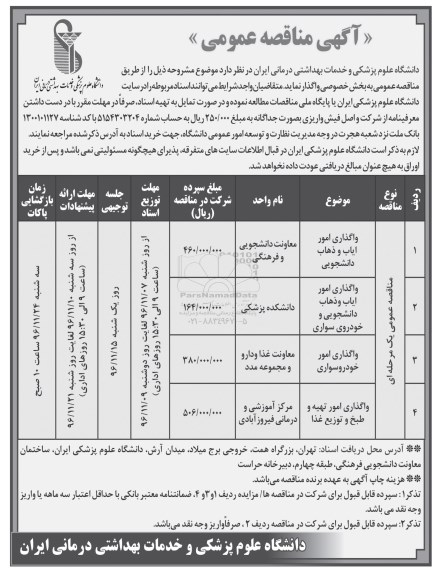 « آگهی مناقصه عمومی »
دانشگاه علوم پزشکی و خدمات بهداشتی درمانی ایران
دانشگاه علوم پزشکی و خدمات بهداشتی درمانی ایران در نظر دارد موضوع مشروحه ذیل را از طریق
مناقصه عمومی به بخش خصوصی واگذار نماید. متقاضیان واجد شرایط می توانند اسناد مربوطه را در سایت
دانشگاه علوم پزشکی ایران یا پایگاه ملی مناقصات مطالعه نموده و در صورت تمایل به تهیه اسناد، صرفاً در مهلت مقرر با در دست داشتن
معرفینامه از شرکت و اصل فیش واریزی بصورت جداگانه به مبلغ ۲۵۰/۰۰۰ ریال به حساب شماره ۵۱۵۴۳۰۳۲۰۴ با کد شناسه ۱۳۰۰۱۰۱۱۲۷
بانک ملت نزد شعبه هجرت در وجه مدیریت نظارت و توسعه امور عمومی دانشگاه، جهت خرید اسناد به آدرس ذکر شده مراجعه نمایند.
لازم به ذکر است دانشگاه علوم پزشکی ایران در قبال اطلاعات سایت های متفرقه، پذیرای هیچگونه مسئولیتی نمی باشد و پس از خرید
اوراق به هیچ عنوان مبالغ دریافتی عودت داده نخواهد شد.
ردیف
نوع مناقصه
موضوع
نام واحد
مبلغ سپرده شرکت در مناقصه (ریال)
مهلت توزیع اسناد
جلسه توجیهی
مهلت ارائه پیشنهادات
زمان بازگشایی پاکات
مناقصه عمومی یک مرحله ای
۱
واگذاری امور ایاب و ذهاب دانشجویی
معاونت دانشجویی و فرهنگی
۴۶۰/۰۰۰/۰۰۰
۲
واگذاری امور ایاب وذهاب دانشجویی و خودروی سواری
دانشکده پزشکی
۱۶۴/۰۰۰/۰۰۰
۳
واگذاری امور خودروسواری
معاونت غذا ودارو و مجموعه مدد
۳۸۰/۰۰۰/۰۰۰
۴
واگذاری امور تهیه و طبخ و توزیع غذا
مرکز آموزشی و درمانی فیروزآبادی
۵۰۶/۰۰۰/۰۰۰
از روز شنبه ۹۶/۱۱/۰۷ لغایت روز دوشنبه ۹۶/۱۱/۰۹
(ساعت ۹ الی ۱۵:۳۰ روزهای اداری)
روز یک شنبه ۹۶/۱۱/۱۵
از روز سه شنبه ۹۶/۱۱/۱۰ لغایت روز شنبه ۹۶/۱۱/۲۱
(ساعت ۹ الی ۱۵:۳۰ روزهای اداری)
سه شنبه ۹۶/۱۱/۲۴ ساعت ۱۰ صبح
ParsNamadData
۰۲۱-۸۸۳۴۹۶۷۰-۵
❊❊ آدرس محل دریافت اسناد: تهران، بزرگراه همت، خروجی برج میلاد، میدان آرش، دانشگاه علوم پزشکی ایران، ساختمان
معاونت دانشجویی فرهنگی، طبقه چهارم، دبیرخانه حراست
❊❊ هزینه چاپ آگهی به عهده برنده مناقصه می‌باشد.
تذکر۱: سپرده قابل قبول برای شرکت در مناقصه ها/ مزایده ردیف ۱و۳و ۴، ضمانتنامه معتبر بانکی با حداقل اعتبار سه ماهه یا واریز
وجه نقد می باشد.
تذکر۲: سپرده قابل قبول برای شرکت در مناقصه ردیف ۲ ، صرفاً واریز وجه نقد می‌باشد.
دانشگاه علوم پزشکی و خدمات بهداشتی درمانی ایران